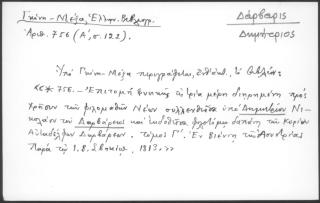 Γκίνη - Μέξα, Ἑλλην. Βιβλιογρ.
Ἀριθ. 756 (Α', σ. 122).
Δάρβαρις
Δημήτριος
Ὑπὸ Γκίνη - Μέξα περιγράφεται, τὸ βιβλίον:
«756. - Ἐπιτομὴ Φυσικῆς εἰς τρία μέρη διῃρημένη πρὸς
χρῆσιν τῶν φιλομαθῶν Νέων συλλεχθεῖσα ὑπὸ Δημητρίου Νι-
κολάου τοῦ Δαρβάρεως καὶ ἐκδοθεῖσα φιλοτίμῳ δαπάνῃ τῶν Κυρίων
Αὐταδέλφων Δαρβάρεων. τόμος Γ'. Ἐν Βιέννῃ τῆς Ἀουστρίας
Παρὰ τῷ Ι. Β. Σβαικίῳ. 1813.»